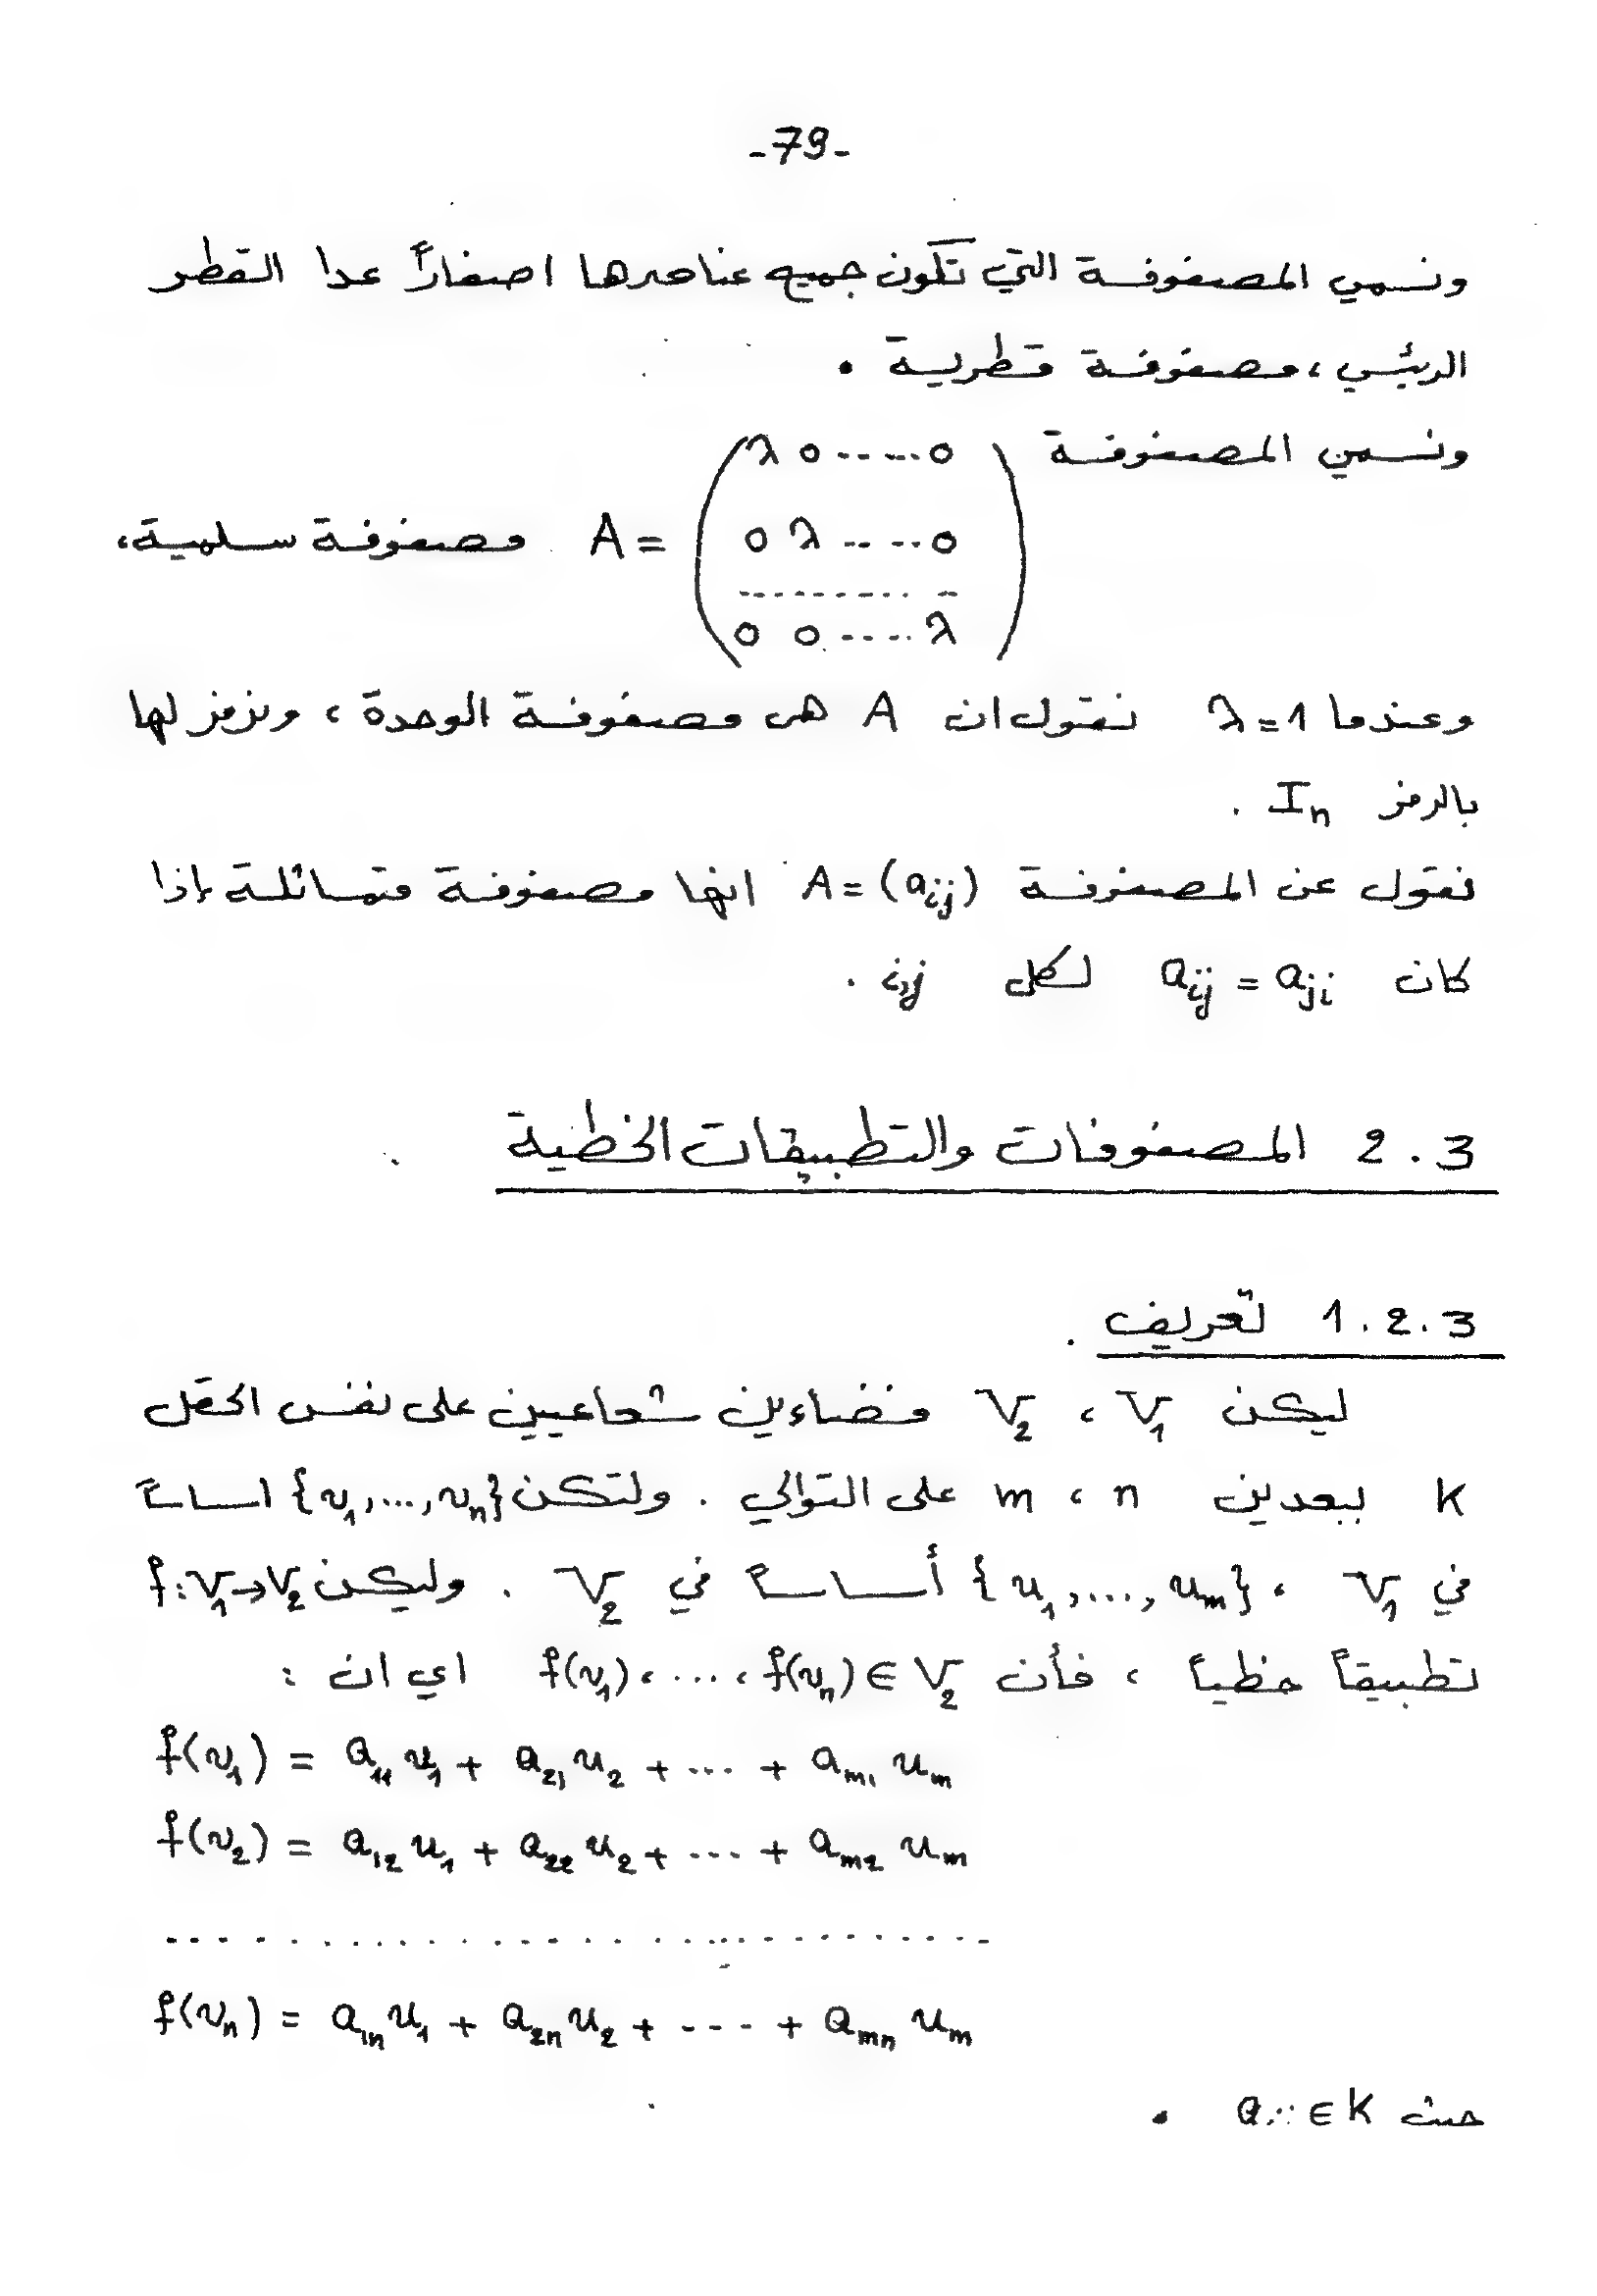 -79-
ونسمي المصفوفة التي تكون جميع عناصرها اصفاراً عدا القطر
الرئيسي ، مصفوفة قطرية .
ونسمي المصفوفة
λ 0 ..... 0
A = 0 λ ..... 0 مصفوفة سلمية،
...........
0 0 ..... λ
وعندما λ=1 نقول ان A هي مصفوفة الوحدة ، ونرمز لها
بالرمز Iₙ .
نقول عن المصفوفة A = (aᵢⱼ) انها مصفوفة متماثلة إذا
كان aᵢⱼ = aⱼᵢ لكل i,j .
2.3 المصفوفات والتطبيقات الخطية
1.2.3 تعريف .
ليكن V₁ ، V₂ فضاءين شعاعيين على نفس الحقل
K ببعدين n ، m على التوالي . ولتكن {v₁,...,vₙ} اساساً
في V₁ ، {u₁,...,uₘ} أساساً في V₂ . وليكن f:V₁→V₂
تطبيقاً خطياً ، فأن f(v₁)، ... ، f(vₙ) ∈ V₂ اي ان :
f(v₁) = a₁₁u₁ + a₂₁u₂ + ... + aₘ₁uₘ
f(v₂) = a₁₂u₁ + a₂₂u₂ + ... + aₘ₂uₘ
..............................
f(vₙ) = a₁ₙu₁ + a₂ₙu₂ + --- + aₘₙuₘ
حيث aᵢⱼ ∈ K .